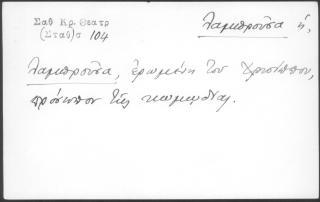 Σαθ Κρ. Θεατρ
(Σταθ)σ 104
λαμπρούσα ἡ,
λαμπρούσα, ἐρωμένη τοῦ Χρυσίππου,
πρόσωπον τῆς κωμῳδίας.